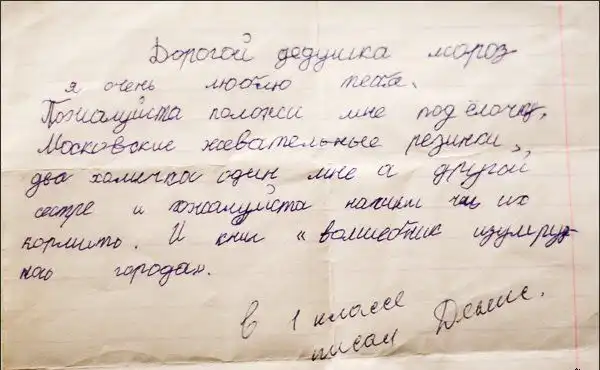 Дорогой дедушка мороз
я очень люблю тебя.
Пожалуйста положи мне под ёлочку,
Московские жевательные резинки,
два хомячка один мне а другой
сестре и пожалуйста напиши чем их
кормить. И книг « волшебник изумруд
ного города».
В 1 классе
писал Денис.